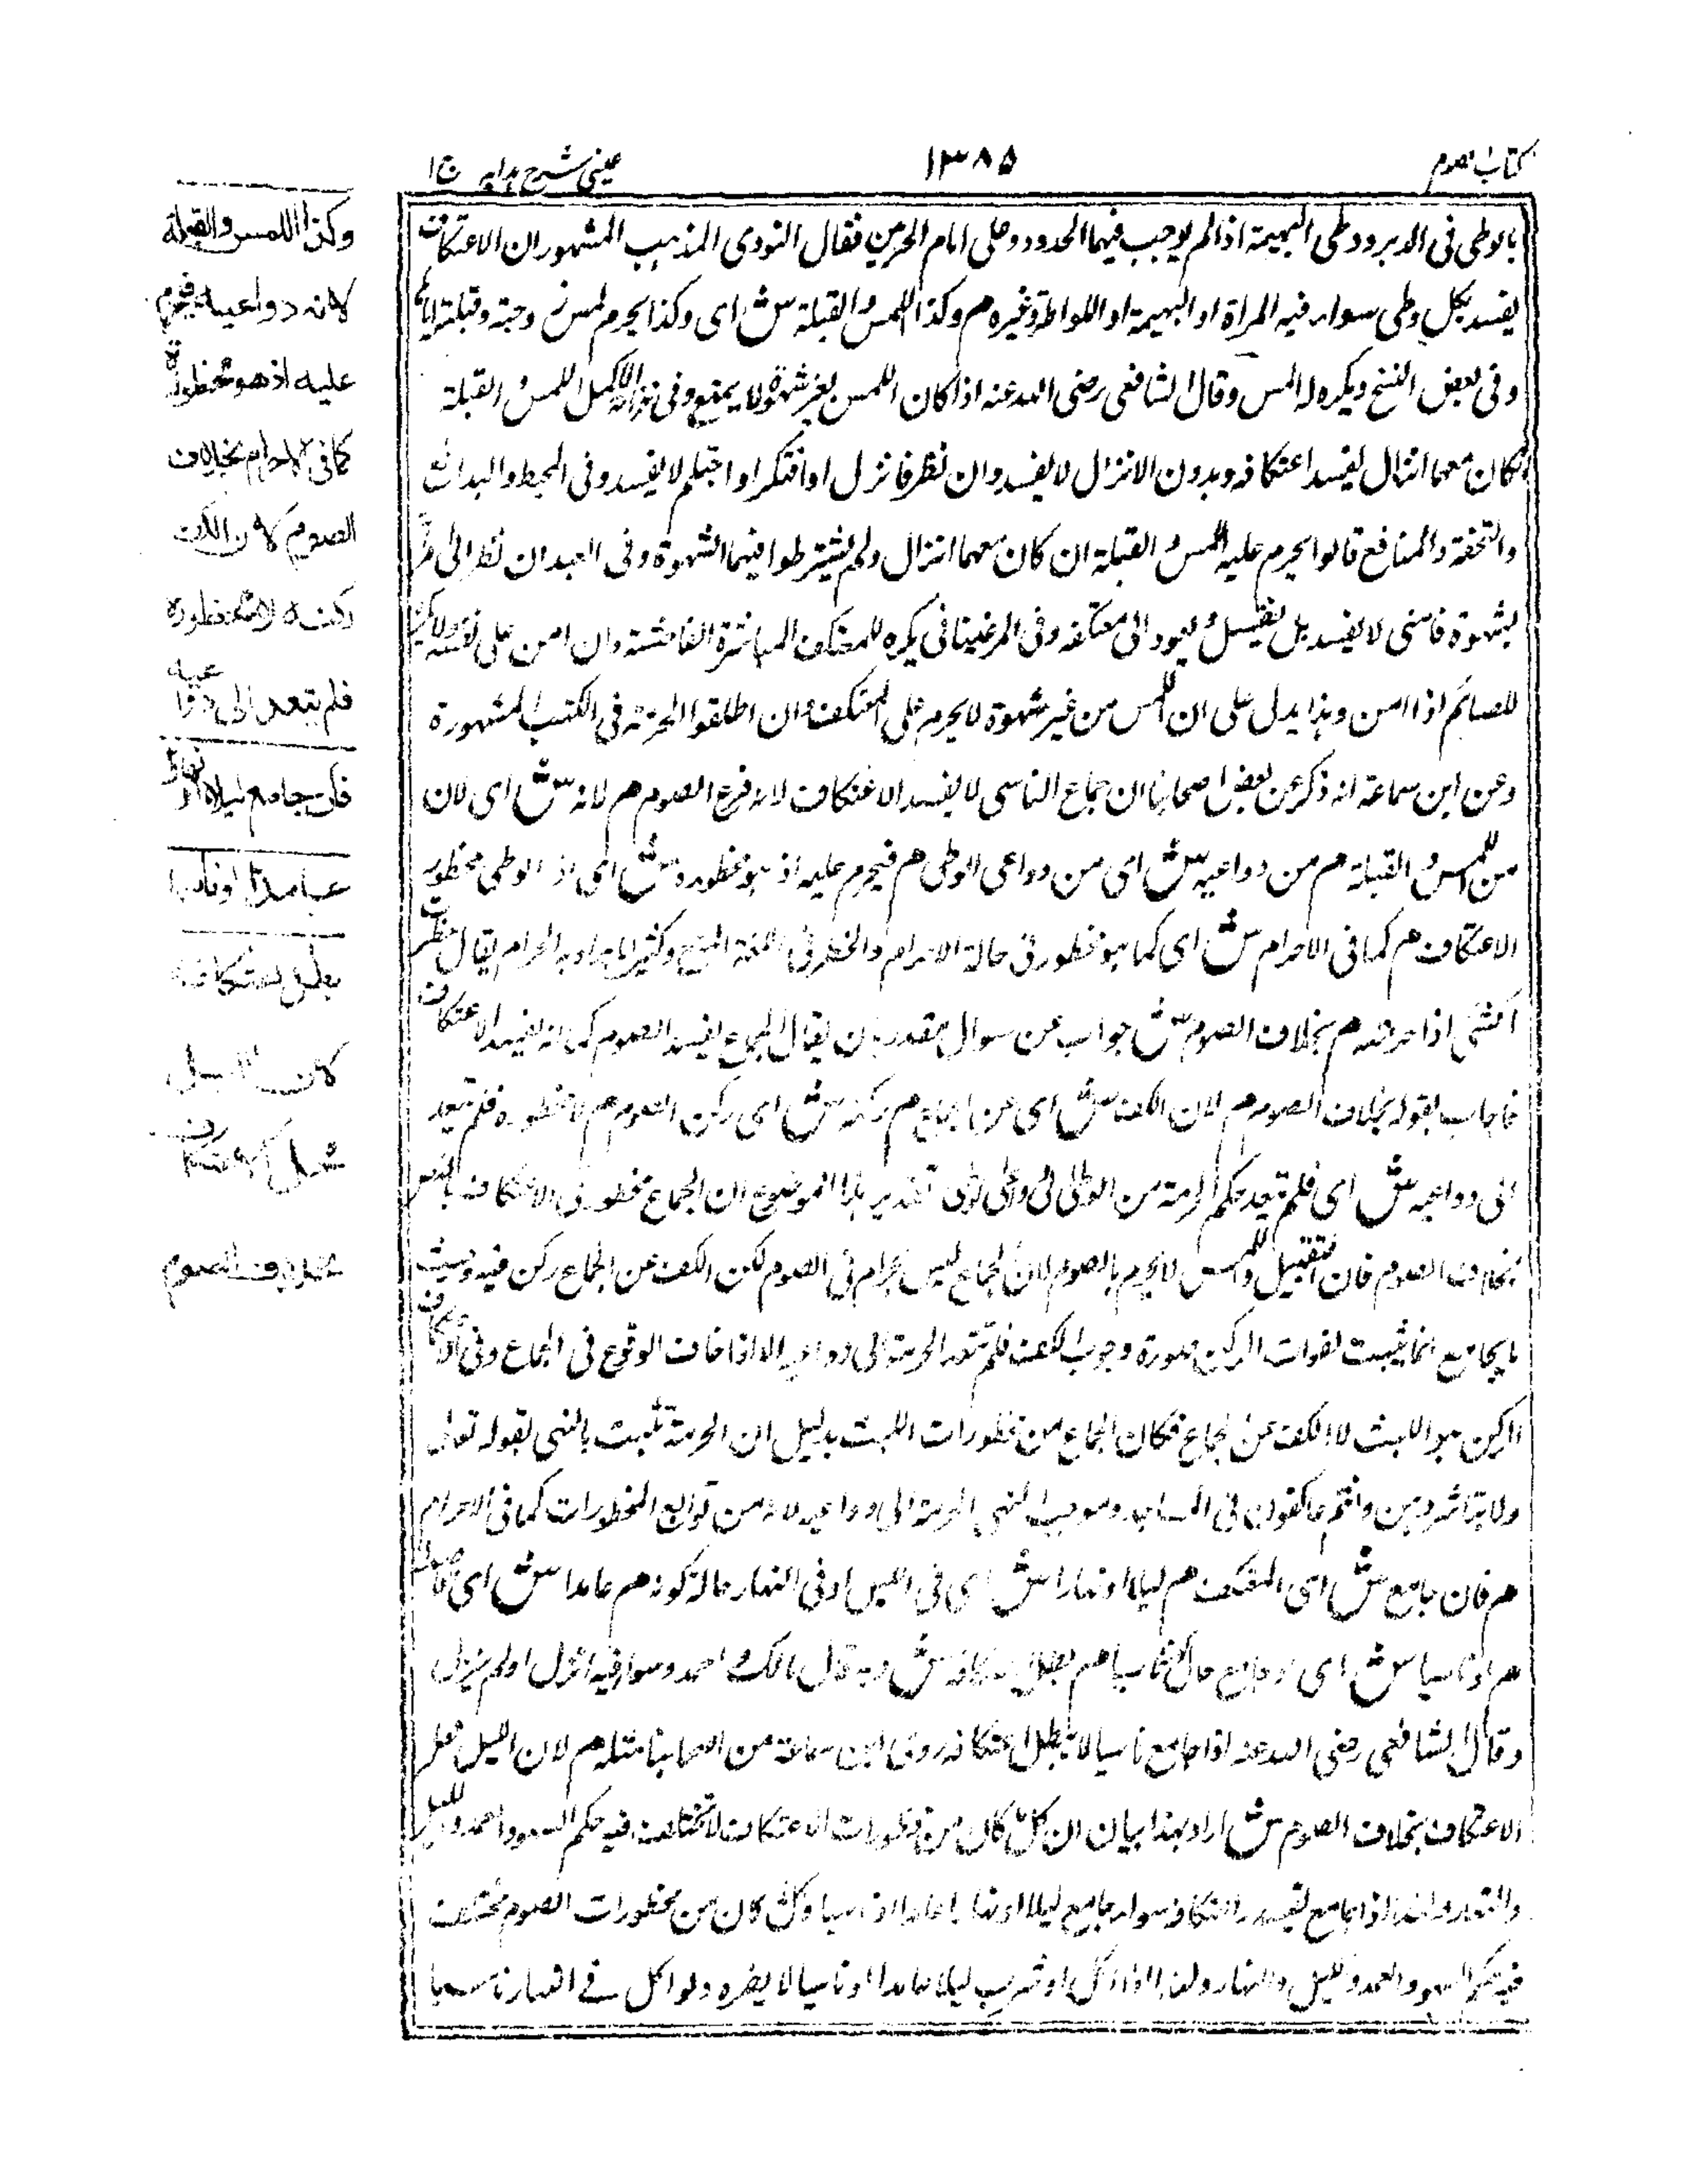 كتاب الصوم
١٣٨٥
عينى شرح هدايه ج ١
بالوطى فى الدبر ووطى البهيمة اذا لم يوجب فيهما الحدود وعلى امام الحرمين فقال النووى المذهب المشهور ان الاعتكاف
يفسد بكل وطى سواء فيه المراة او البهيمة او اللواطة وغيره م وكذا اللمس والقبلة ش اى وكذا يحرم لمس زوجته وقبلته
وفى بعض النسخ ويكره له المس وقال الشافعى رضى الله عنه اذا كان اللمس بغير شهوة لا يمنع وفى الاكمل اللمس والقبلة
ان كان معهما انزال يفسد اعتكافه وبدون الانزال لا يفسد وان نظر فانزل او افتكر او احتلم لا يفسد وفى المحيط والبدائع
والتحفة والمنافع قالوا يحرم عليه المس والقبلة ان كان معهما انزال ولم يشترطوا فيهما الشهوة وفى العبد ان نظر الى
بشهوة فامنى لا يفسد بل يغتسل ويعود الى معتكفه وفى المرغينانى يكره للمعتكف المباشرة الفاحشة وان امن على نفسه ولا يكره
للصائم اذا امن وهذا يدل على ان اللمس من غير شهوة لا يحرم على المعتكف وان اطلقوا الحرمة فى الكتب المشهورة
وعن ابن سماعة انه ذكر عن بعض اصحابنا ان جماع الناسى لا يفسد الاعتكاف لانه فرع الصوم م لانه ش اى لان
من اللمس والقبلة م من دواعيه ش اى من دواعى الوطى م فيحرم عليه اذ هو محظوره ش اى اذ الوطى محظور
الاعتكاف م كما فى الاحرام ش اى كما هو محظور فى حالة الاحرام والحظر فى اللغة المنع وكثيرا ما يراد به الحرام يقال حظرت
الشئ اذا حرمته م بخلاف الصوم ش جواب عن سوال مقدر بان يقال الجماع يفسد الصوم كما انه يفسد الاعتكاف
فاجاب بقوله بخلاف الصوم م لان الكف ش اى عن الجماع م ركنه ش اى ركن الصوم م لا محظوره فلم يتعد
الى دواعيه ش اى فلم يتعد حكم الحرمة من الوطى الى دواعى الوطى تقدير هذا الموضع ان الجماع محظور فى الاعتكاف بالنص
بخلاف الصوم فان التقبيل واللمس لا يحرم بالصوم لان الجماع ليس بحرام فى الصوم لكن الكف عن الجماع ركن فيه
بالجماع انما يثبت لفوات الركن ضرورة وجوب الكف فلم تتعد الحرمة الى دواعيه الا اذا خاف الوقوع فى الجماع وفى الاعتكاف
الركن هو اللبث لا الكف عن الجماع فكان الجماع من محظورات اللبث بدليل ان الحرمة تثبت بالنهى لقوله تعالى
ولا تباشروهن وانتم عاكفون فى المساجد وموجب النهى الحرمة الى دواعيه لانه من توابع المحظورات كما فى الاحرام
م فان جامع ش اى المعتكف م ليلا او نهارا ش اى فى الليل او فى النهار حالة كونه م عامدا ش اى
م او ناسيا ش اى او جامع حال كونه ناسيا م بطل اعتكافه ش وبه قال مالك واحمد وسواء فيه انزل او لم ينزل
وقال الشافعى رضى الله عنه اذا جامع ناسيا لا يبطل اعتكافه وروى ابن سماعة من اصحابنا مثله م لان الليل محل
الاعتكاف بخلاف الصوم ش اراد بهذا بيان ان كل ما كان من محظورات الاعتكاف لا تختلف فيه حكم السهو والعمد والليل
والنهار ولهذا اذا جامع يفسد اعتكافه سواء جامع ليلا او نهارا عامدا او ناسيا وكل ما كان من محظورات الصوم يختلف
فيه حكم السهو والعمد والليل والنهار ولهذا اذا اكل او شرب ليلا عامدا او ناسيا لا يضره ولو اكل فى النهار ناسيا
وكذا اللمس والقبلة
لانه دواعيه فيحرم
عليه اذ هو محظوره
كما فى الاحرام بخلاف
الصوم لان الكف
ركنه لا محظوره
فلم يتعد الى دواعيه
فان جامع ليلا او نهارا
عامدا او ناسيا
بطل اعتكافه
لان الليل
محل الاعتكاف
بخلاف الصوم